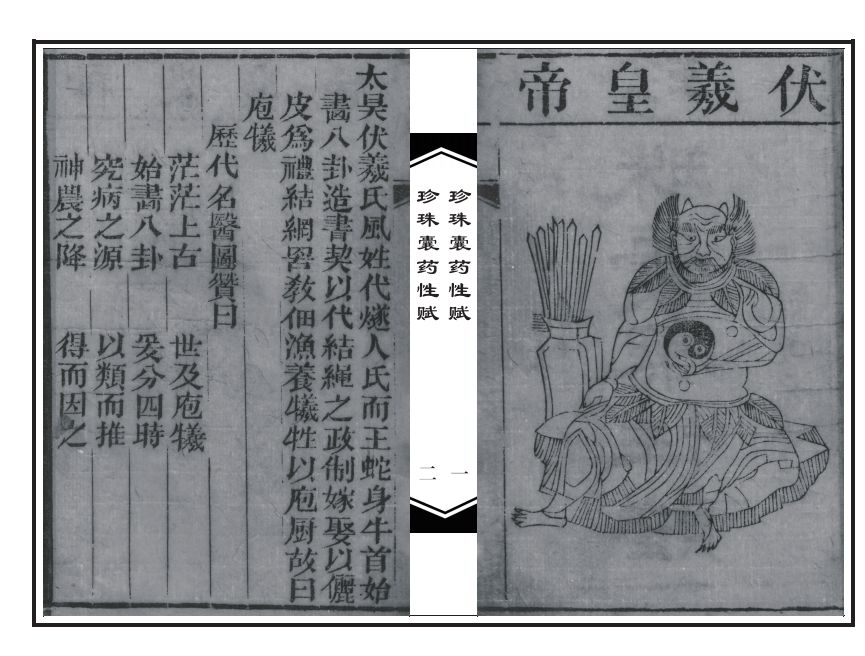 伏羲皇帝
珍珠囊药性赋
一
珍珠囊药性赋
二
太昊伏羲氏風姓代燧人氏而王蛇身牛首始
畫八卦造書契以代結繩之政制嫁娶以儷
皮爲禮結網罟教佃漁養犧牲以庖厨故曰
庖犧
歷代名醫圖贊曰
茫茫上古 世及庖犧
始畫八卦 爰分四時
究病之源 以類而推
神農之降 得而因之